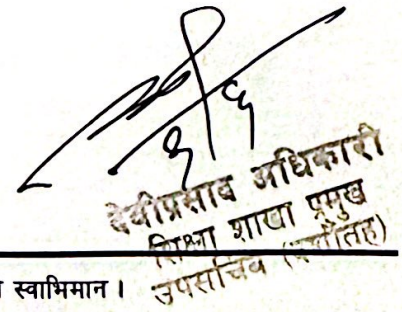 देवीप्रसाद अधिकारी
शिक्षा शाखा प्रमुख
उपसचिव
स्वाभिमान ।